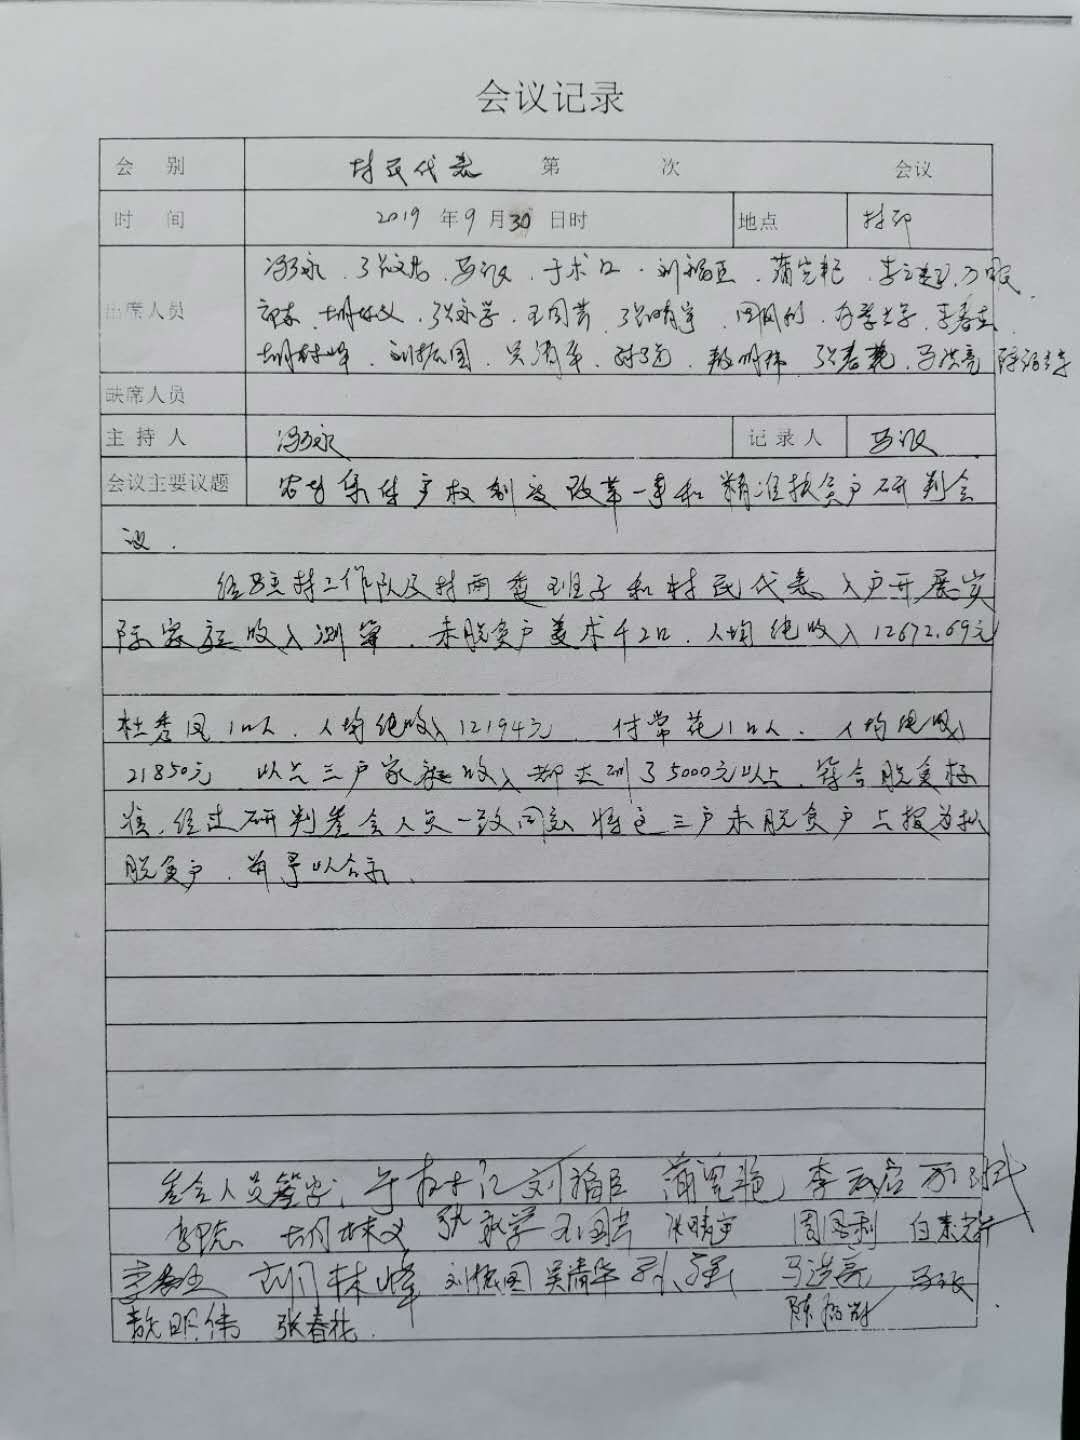 会议记录
会 别 村民代表 第 次 会议
时 间 2019 年 9 月 30 日时 地点 村部
冯永 刘福臣
出席人员 胡林义 张永学 王国芳 张晴宇 周凤利
胡林峰 刘振国 吴清华 敖明伟 张春花 马洪亮
缺席人员
主 持 人 冯永 记 录 人
会议主要议题 农村集体产权制度改革一事和精准扶贫户研判会
议.
经驻村工作队及村两委班子和村民代表入户开展实
际家庭收入测算,未脱贫户姜术千2口,人均纯收入12672.69元
杜秀凤1口人,人均纯收入12194元 付常花1口人,人均纯收入
21850元 以上三户家庭收入都达到了5000元以上,符合脱贫标
准,经过研判参会人员一致同意将这三户未脱贫户上报为拟
脱贫户,并予以公示.
参会人员签字: 刘福臣
胡林义 张永学 王国芳 张晴宇 周凤利
胡林峰 刘振国 吴清华 孙强 马洪亮
敖明伟 张春花